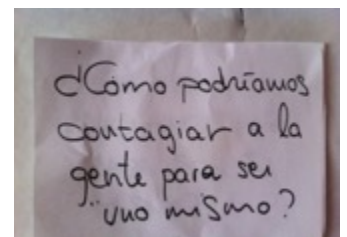 ¿Cómo podríamos
contagiar a la
gente para ser
uno mismo?